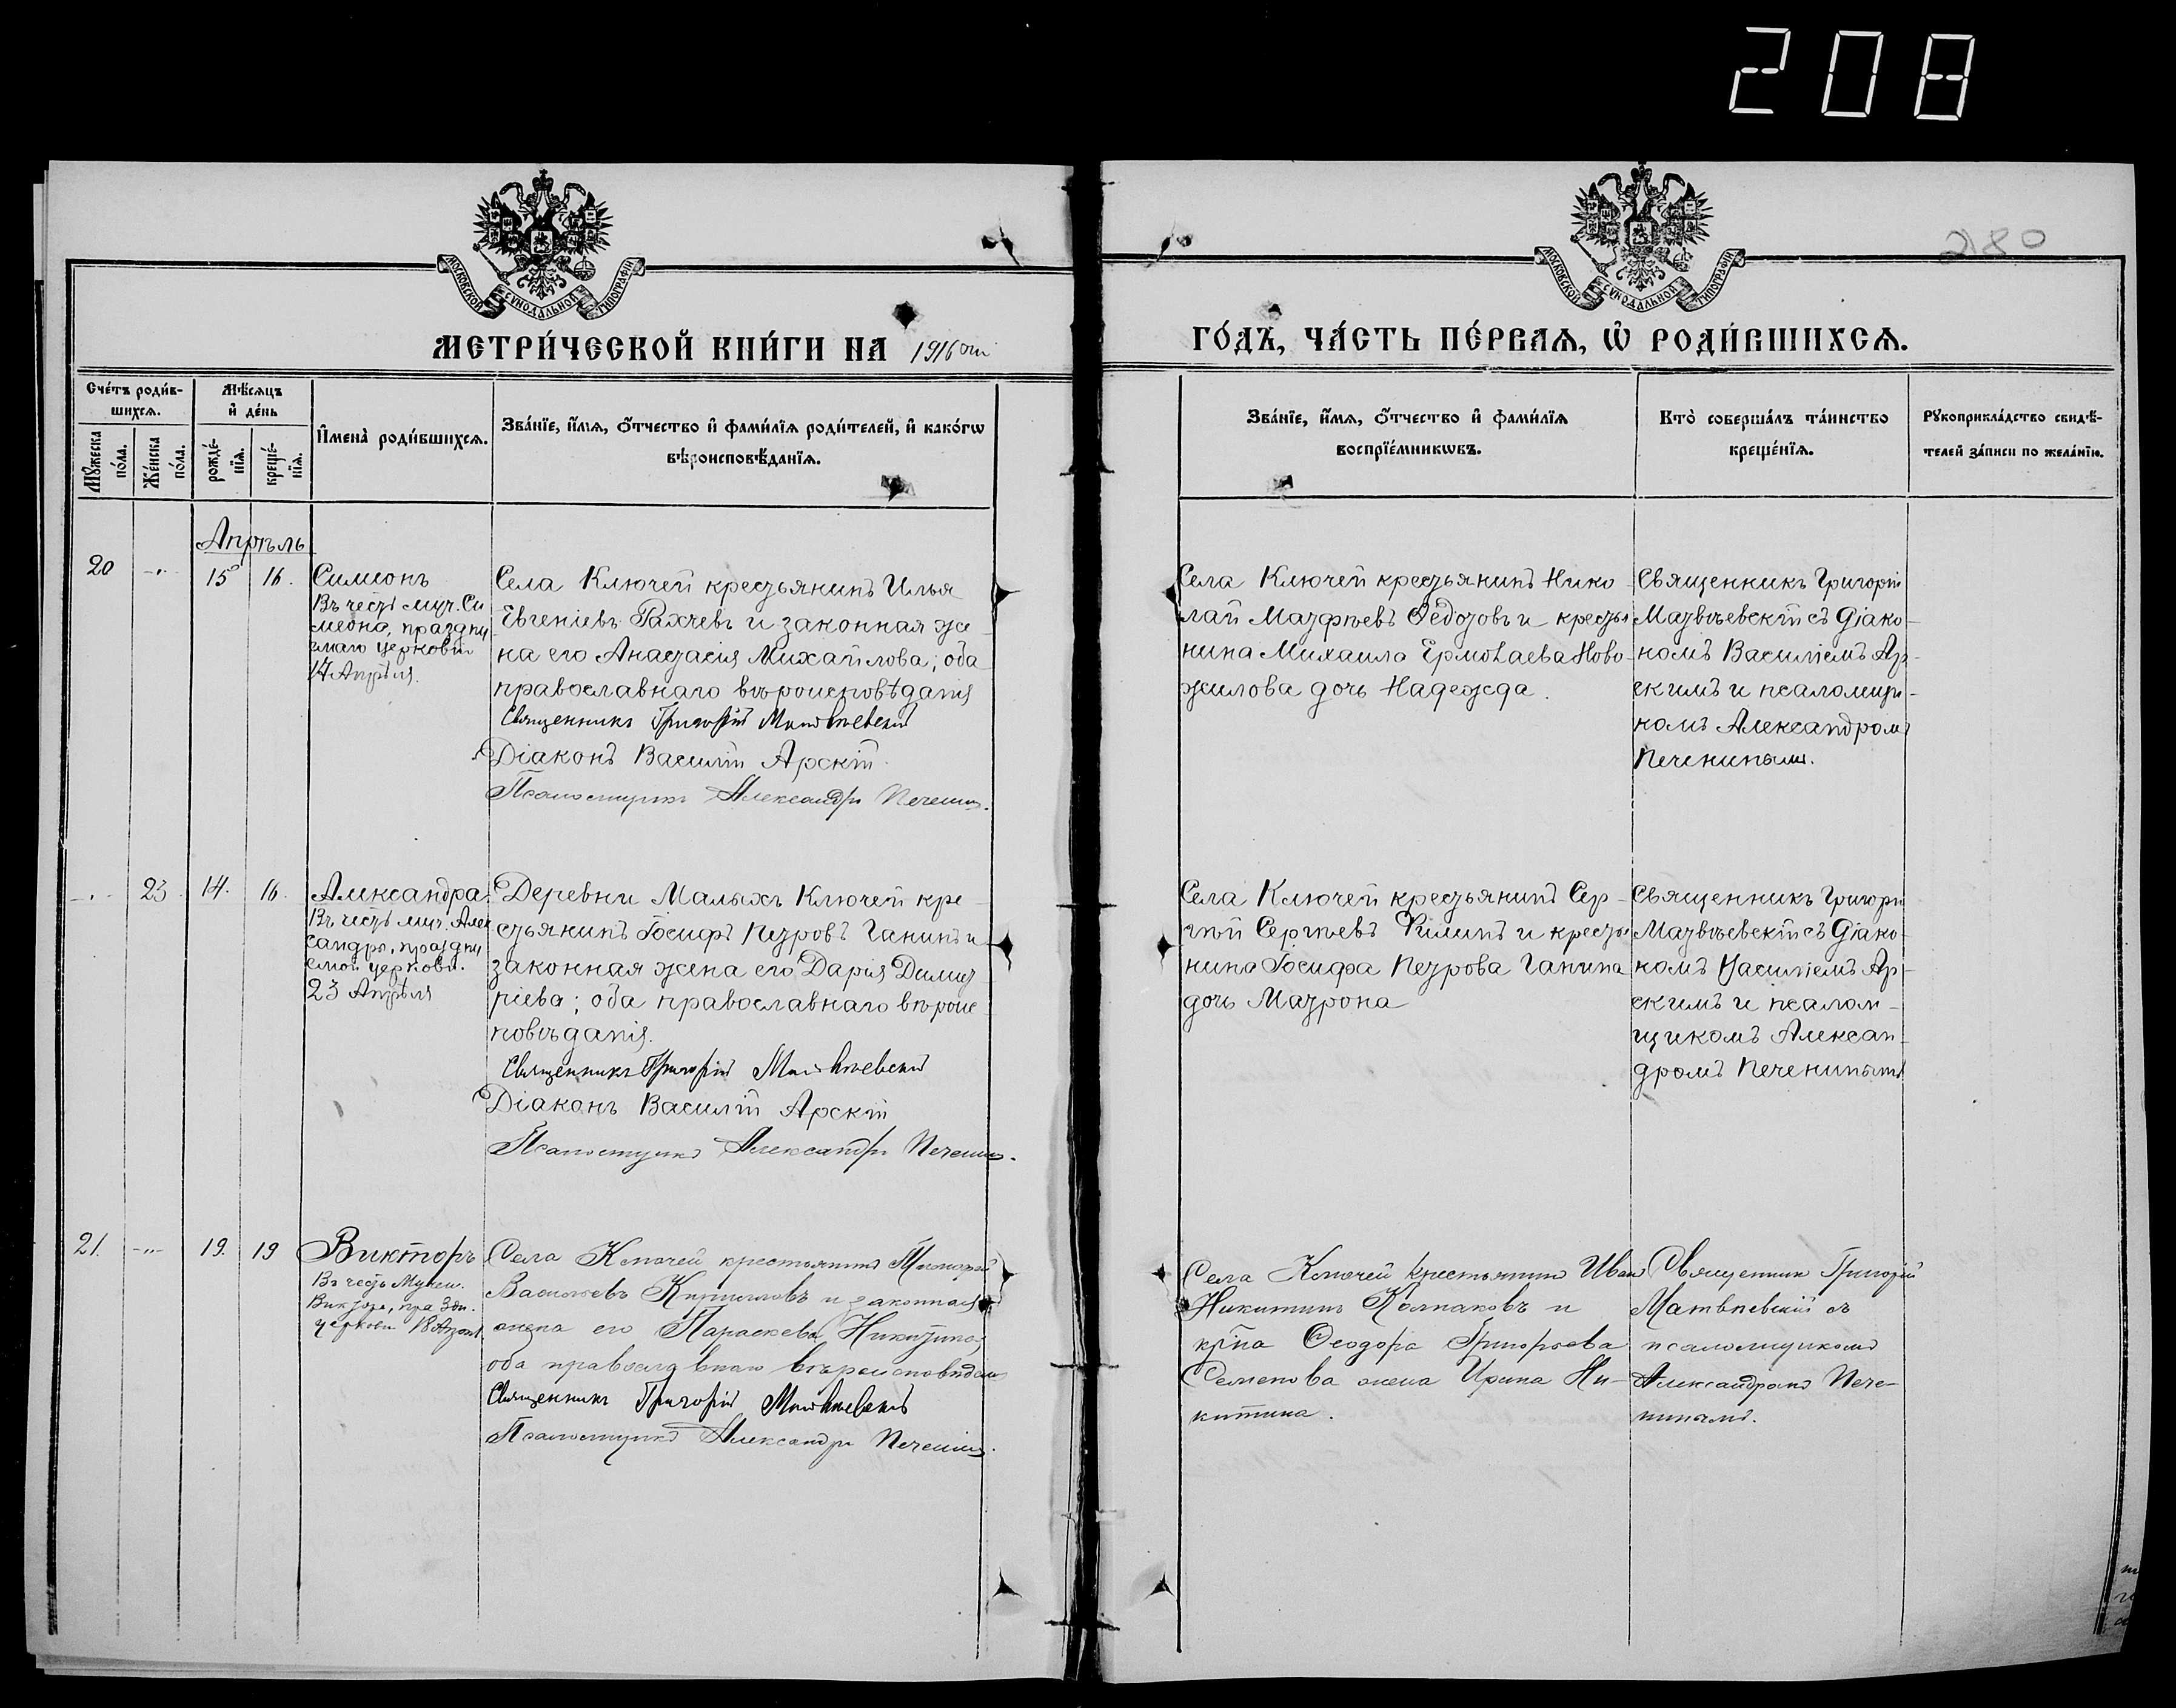 208
МОСКОВСКОЙ СУНОДАЛЬНОЙ ТИПОГРАФІИ
МОСКОВСКОЙ СУНОДАЛЬНОЙ ТИПОГРАФІИ
280
МЕТРИ́ЧЕСКОЙ КНИ́ГИ НА 1916 ой
ГО́ДЪ, ЧА́СТЬ ПЕ́РВАѦ, Ѡ҆ РОДИ́ВШИХСѦ.
Сче́тъ роди́в-
шихсѧ.
Мꙋ́жеска по́ла.
Же́нска по́ла.
Мѣ́сѧцъ
и҆ де́нь
рожде́-
нїѧ.
креще́-
нїѧ.
И҆мена̀ роди́вшихсѧ.
Зва́нїе, и҆́мѧ, ѻ҆́тчество и҆ фами́лїѧ роди́телей, и҆ како́гѡ
вѣроисповѣ́данїѧ.
Зва́нїе, и҆́мѧ, ѻ҆́тчество и҆ фами́лїѧ
воспрїе́мникѡвъ.
Кто̀ соверша́лъ та́инство
креще́нїѧ.
Рꙋкоприкла́дство свидѣ́-
телей за́писи по жела́нїю.
Апрѣль
20 -"- 15 16.
Симеонъ
Въ честь муч. Си
меона, праздну
емаго церковiю
17 Апрѣля.
Села Ключей крестьянинъ Илья
Евгеніевъ Рахчевъ и законная же-
на его Анастасія Михайлова; оба
православнаго вѣроисповѣданія
Священникъ Григорій Матвѣевскій
Діаконъ Василій Арскій.
Псаломщикъ Александръ Печенинъ.
Села Ключей крестьянинъ Нико-
лай Матѳѣевъ Ѳедотовъ и крестья
нина Михаила Ермолаева Ново-
жилова дочь Надежда.
Священникъ Григорій
Матвѣевскій съ діако-
номъ Василіемъ Ар-
скимъ и псаломщи-
комъ Александромъ
Печенинымъ.
-"- 23. 14. 16.
Александра.
Въ честь муч. Алек
сандры, праздну
емой церкови.
23 Апрѣля
Деревни Малыхъ Ключей кре-
стьянинъ Іосифъ Петровъ Ганинъ и
законная жена его Дарія Димит
ріева; оба православнаго вѣроис
повѣданія.
Священникъ Григорій Матвѣевскій
Діаконъ Василій Арскій
Псаломщикъ Александръ Печенинъ.
Села Ключей крестьянинъ Сер-
гѣй Сергѣевъ Филинъ и крестья
нина Іосифа Петрова Ганина
дочь Матрона
Священникъ Григорій
Матвѣевскій съ діако-
номъ Василіемъ Ар-
скимъ и псалом-
щикомъ Алексан-
дромъ Печенинымъ
21. -"- 19. 19
Викторъ
Въ честь Мучен.
Виктора, праздн.
церкови 18 Апрѣля
Села Ключей крестьянинъ
Васильевъ Кирилловъ и законная
жена его Параскева Никитина,
оба православнаго вѣроисповѣдан
Священникъ Григорій Матвѣевскій
Псаломщикъ Александръ Печенинъ.
Села Ключей крестьянинъ Иванъ
Никитинъ Колпаковъ и
кр̃на Ѳеодора Григорьева
Семенова жена Ирина Ни-
китина.
Священник Григорій
Матвѣевскій съ
псаломщикомъ
Александромъ Пече-
нинымъ.